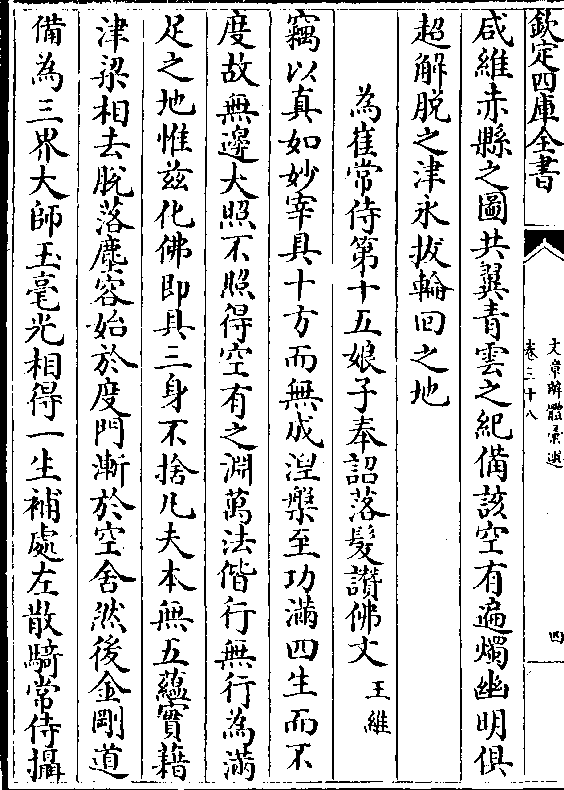 欽定四庫全書
文章辨體彙選
卷三十八
四
咸維赤縣之圖共翼青雲之紀備該空有遍燭幽明俱
超解脱之津永拔輪回之地
為崔常侍第十五娘子奉詔落髮讃佛文 王維
竊以真如妙宰具十方而無成湼槃至功滿四生而不
度故無邊大照不照得空有之淵萬法偕行無行為滿
足之地惟兹化佛即具三身不捨凡夫本無五藴實藉
津梁相去脱落塵容始於度門漸於空舍然後金剛道
備為三界大師玉毫光相得一生補處左散騎常侍攝